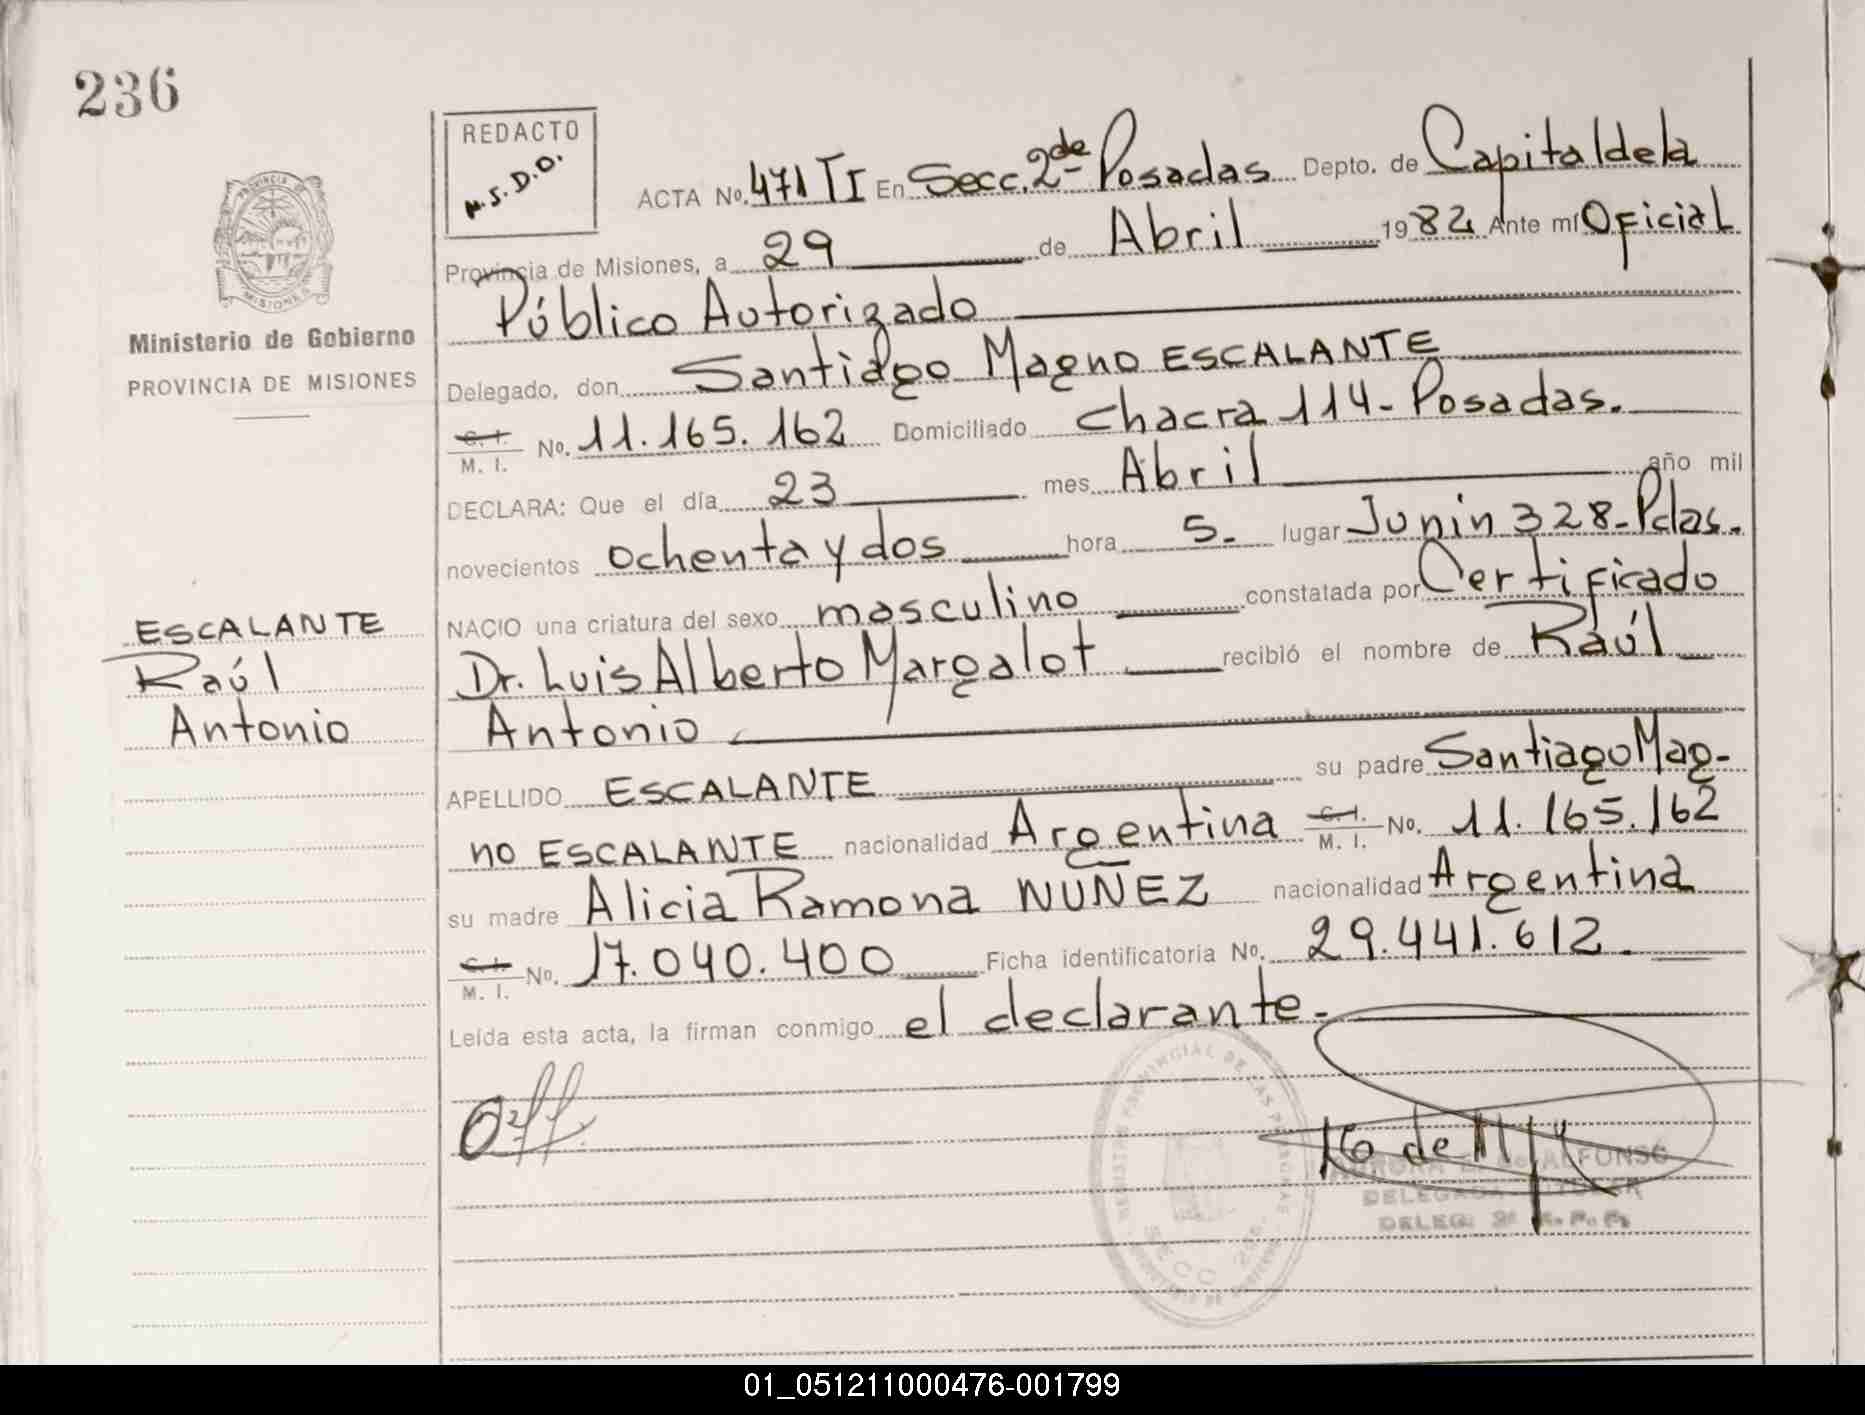 236
REDACTO
M.S.D.O.
PROVINCIA DE
MISIONES
Ministerio de Gobierno
PROVINCIA DE MISIONES
ESCALANTE
Raúl
Antonio
ACTA No. 471 TI En Secc. 2de Posadas Depto. de Capital de la
Provincia de Misiones, a 29 de Abril 1982 Ante mí Oficial
Público Autorizado
Delegado, don Santiago Magno ESCALANTE
C. I. / M. I. No. 11.165.162 Domiciliado chacra 114- Posadas.
DECLARA: Que el día 23 mes Abril año mil
novecientos ochenta y dos hora 5. lugar Junin 328- Pdas.
NACIO una criatura del sexo masculino constatada por Certificado
Dr. Luis Alberto Margalot recibió el nombre de Raúl
Antonio
APELLIDO ESCALANTE su padre Santiago Mag-
no ESCALANTE nacionalidad Argentina C. I. / M. I. No. 11.165.162
su madre Alicia Ramona NUÑEZ nacionalidad Argentina
C. I. / M. I. No. 17.040.400 Ficha identificatoria No. 29.441.612.
Leída esta acta, la firman conmigo el declarante.-
REGISTRO PROVINCIAL DE LAS PERSONAS
SECC 2da.
AURORA E. de ALFONSO
DELEGADA TITULAR
DELEG. 2ª R. P. P.
01_051211000476-001799